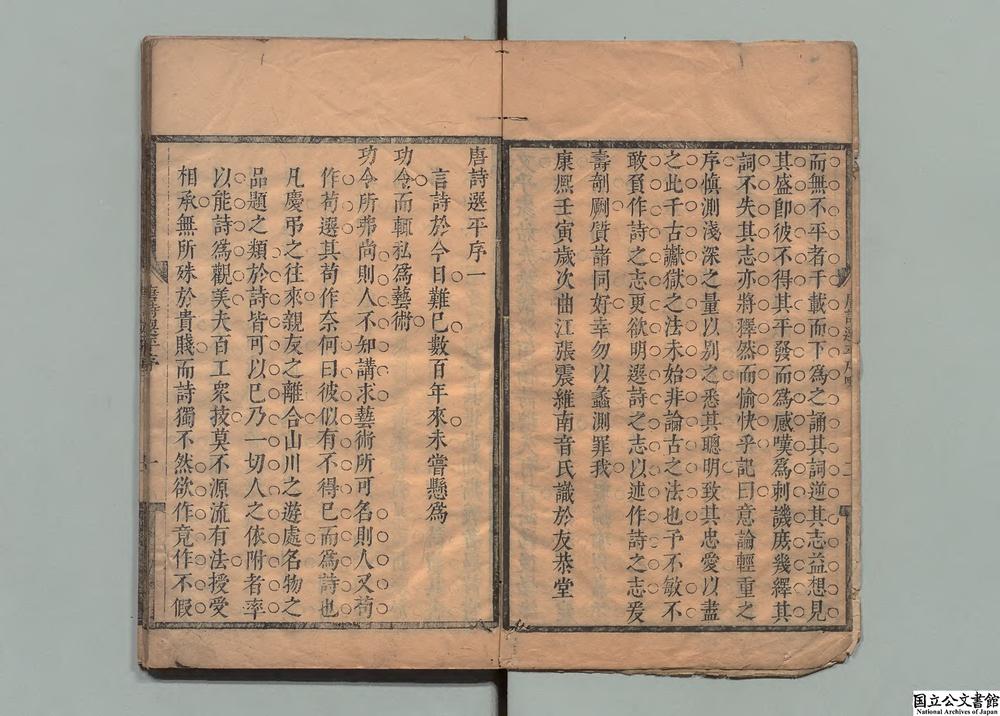 而無不平者千載而下為之誦其詞逆其志益想見
其盛卽彼不得其平發而為感嘆為刺譏庶幾繹其
詞不失其志亦將釋然而愉快乎記曰意論輕重之
序慎測淺深之量以別之悉其聰明致其忠愛以盡
之此千古讞獄之法未始非論古之法也予不敏不
敢貟作詩之志更欲明選詩之志以述作詩之志爰
壽剞劂質諸同好幸勿以蠡測罪我
康熈壬寅歲次曲江張震維南音氏識於友恭堂
唐詩選平序一
言詩於今日難已數百年來未嘗懸為
功令而輒私為藝術
功令所弗尚則人不知講求藝術所可名則人又苟
作苟選其苟作奈何曰彼似有不得已而為詩也
凡慶弔之往來親友之離合山川之遊處名物之
品題之類於詩皆可以已乃一切人之依附者率
以能詩為觀美夫百工衆技莫不源流有法授受
相承無所殊於貴賤而詩獨不然欲作竟作不假
唐詩選平序
一
二
国立公文書館
National Archives of Japan